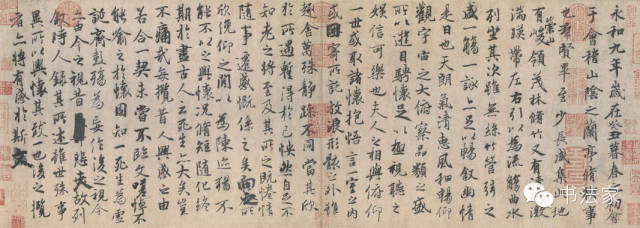 永和九年歲在癸丑暮春之初會
于會稽山陰之蘭亭脩稧事
也羣賢畢至少長咸集此地
有崇山峻領茂林脩竹又有清流激
湍暎帶左右引以為流觴曲水
列坐其次雖無絲竹管弦之
盛一觴一詠亦足以暢叙幽情
是日也天朗氣清惠風和暢仰
觀宇宙之大俯察品類之盛
所以遊目騁懷足以極視聽之
娛信可樂也夫人之相與俯仰
一世或取諸懷抱悟言一室之內
或因寄所託放浪形骸之外雖
趣舍萬殊靜躁不同當其欣
於所遇蹔得於己怏然自足不
知老之將至及其所之既惓情
隨事遷感慨係之矣向之所
欣俛仰之閒以為陳迹猶不
能不以之興懷況脩短隨化終
期於盡古人云死生亦大矣豈
不痛哉每攬昔人興感之由
若合一契未嘗不臨文嗟悼不
能喻之於懷固知一死生為虛
誕齊彭殤為妄作後之視今
亦由今之視昔悲夫故列
敘時人錄其所述雖世殊事
異所以興懷其致一也後之攬
者亦將有感於斯文
书法家